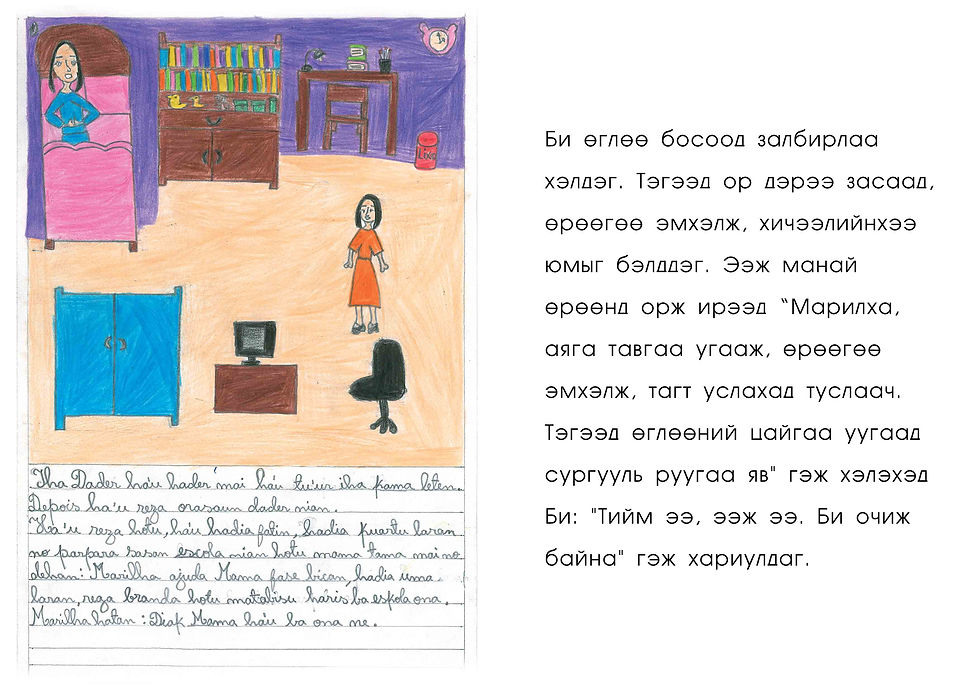 Lixo
Iha Dader ha'u hader mai ha'u tu'ur iha kama leten.
Depois ha'u reza orasaun dader nian.
Ha'u reza hotu, ha'u hadia fatin, hadia kuartu laran
no parpara sasan escola nian hotu mama tama mai no
dehan: Marilha ajuda Mama fase bican, hadia uma
laran, rega branda hotu matabisu háris ba eskola ona.
Marilha hatan: Diak Mama ha'u ba ona ne.
Би өглөө босоод залбирлаа
хэлдэг. Тэгээд ор дэрээ засаад,
өрөөгөө эмхэлж, хичээлийнхээ
юмыг бэлддэг. Ээж манай
өрөөнд орж ирээд “Марилха,
аяга тавгаа угааж, өрөөгөө
эмхэлж, тагт услахад туслаач.
Тэгээд өглөөний цайгаа уугаад
сургууль руугаа яв" гэж хэлэхэд
Би: "Тийм ээ, ээж ээ. Би очиж
байна" гэж хариулдаг.